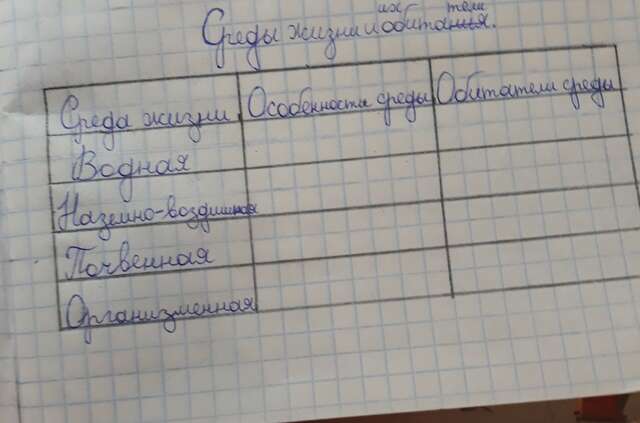 Среды жизни и их обитатели.
Среда жизни Особенности среды Обитатели среды
Водная
Наземно-воздушная
Почвенная
Организменная